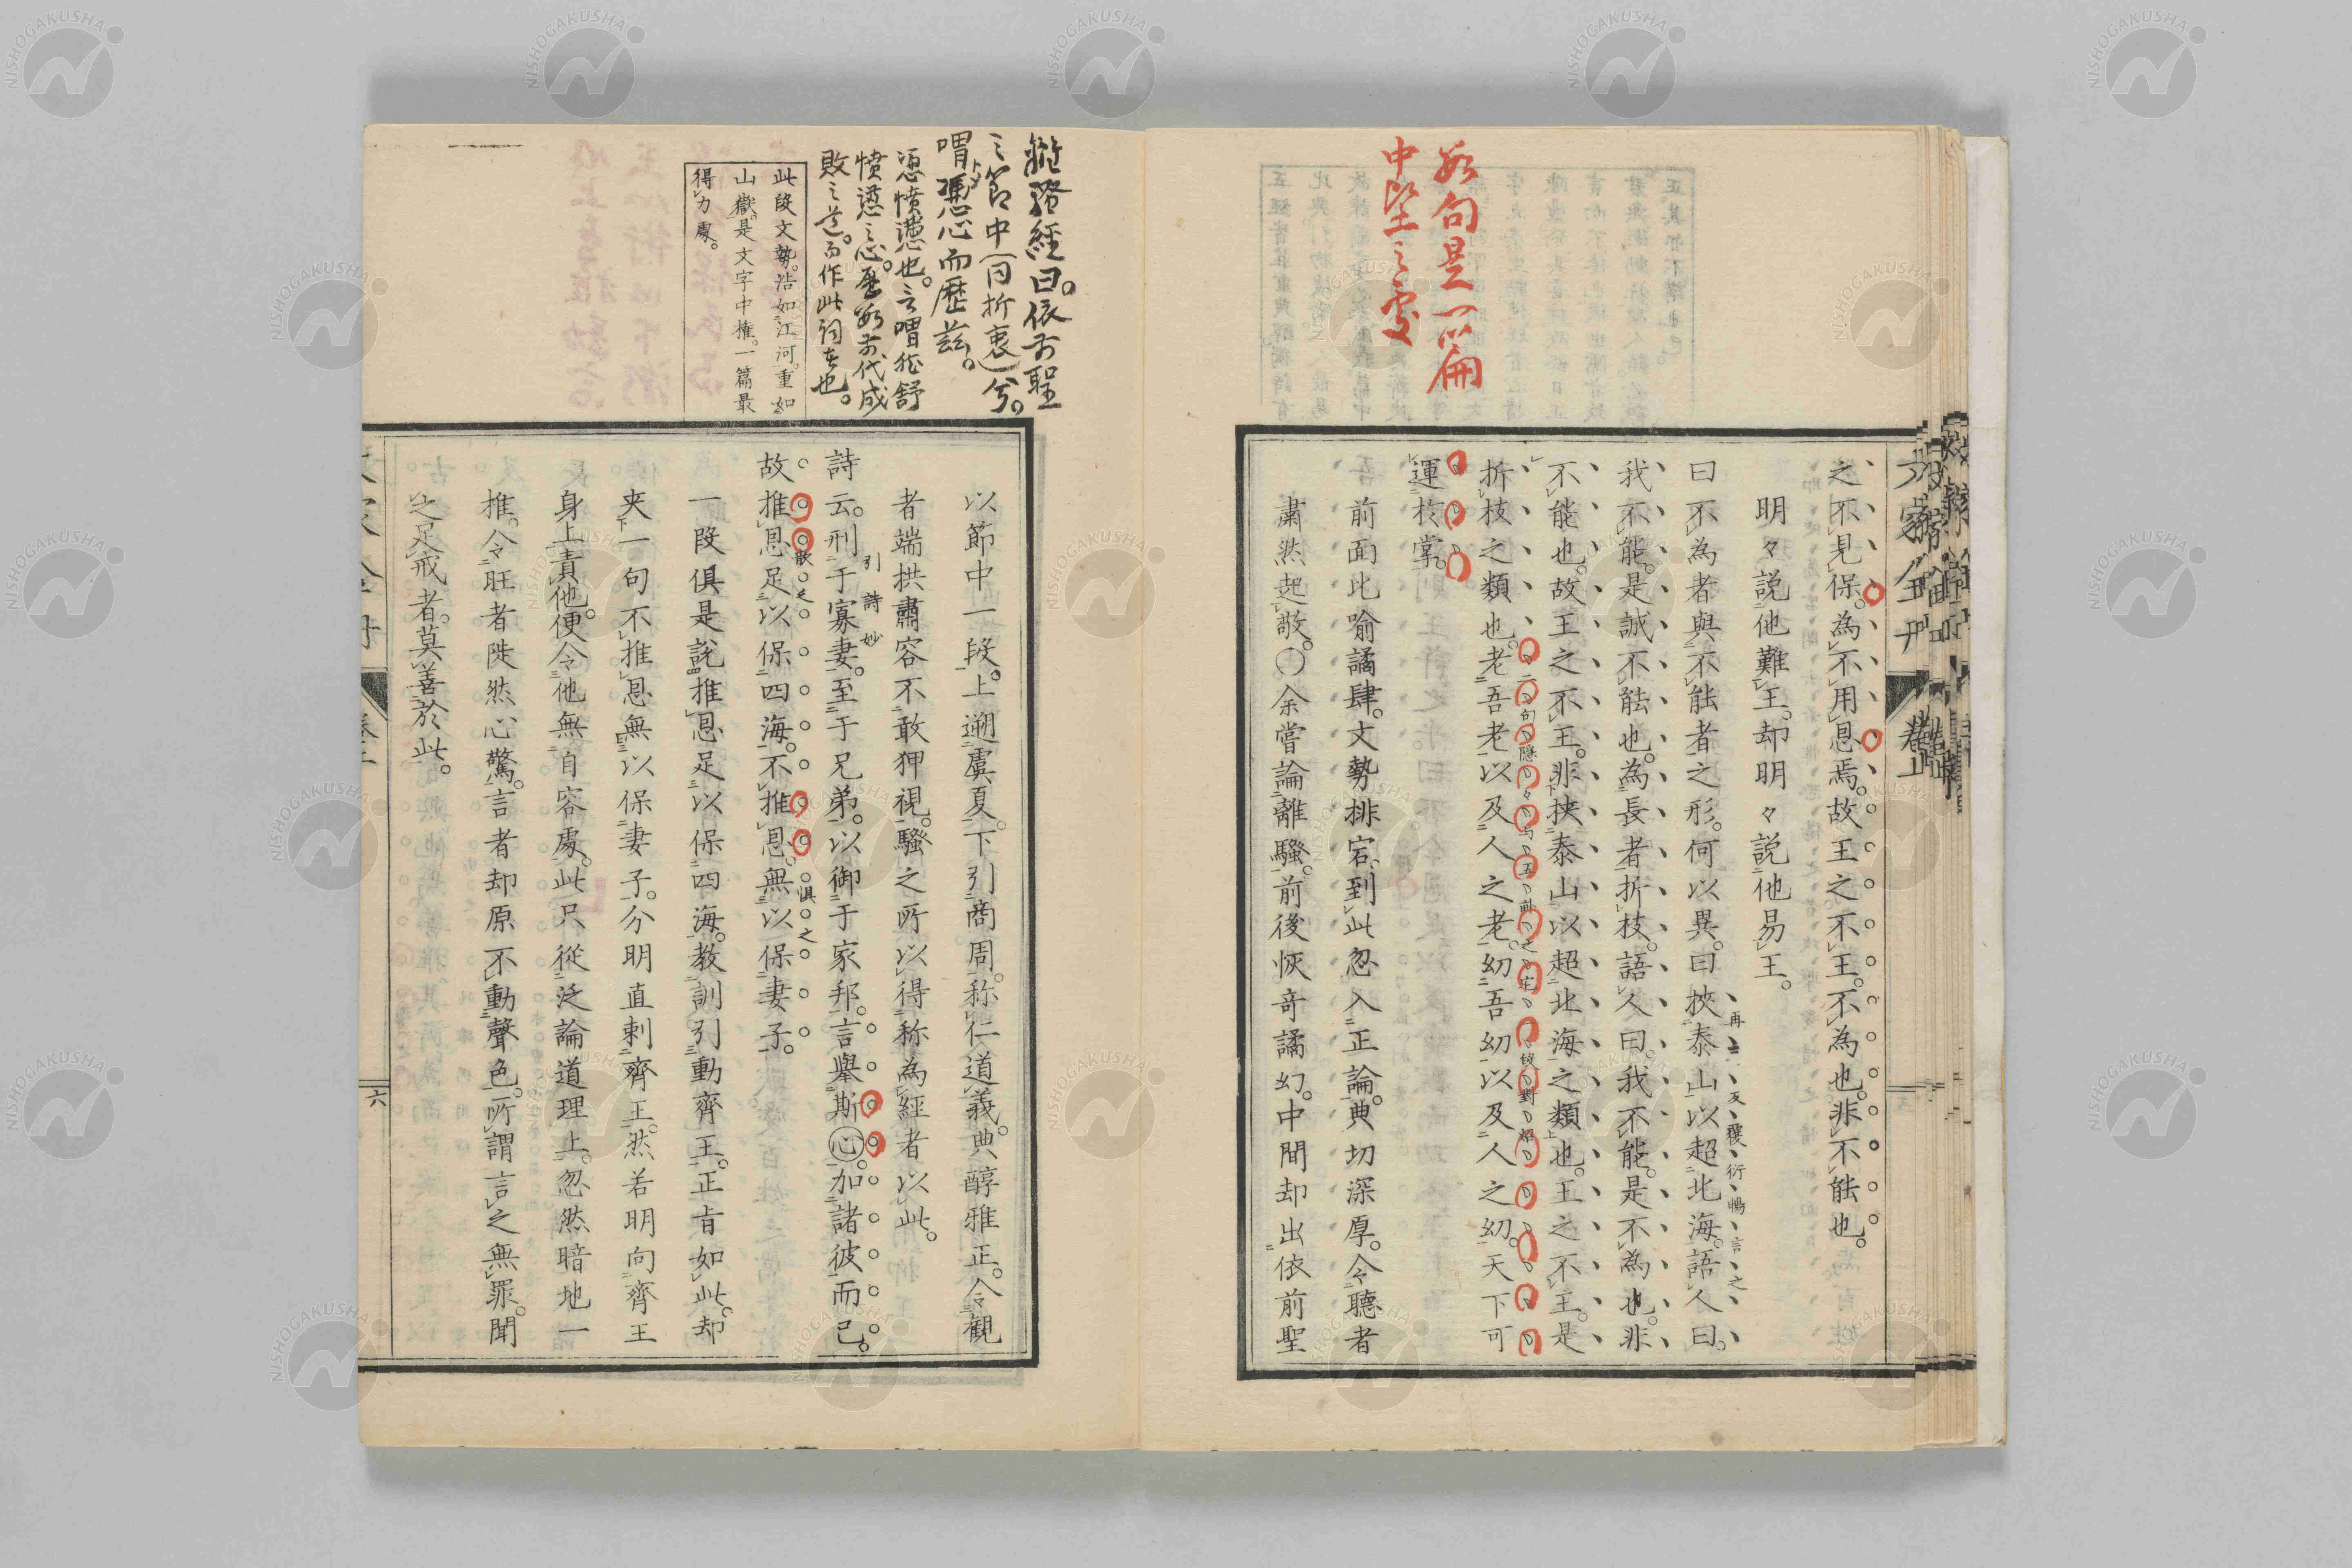 数句是一篇
中堅之處
之不見保。為不用恩焉。故王之不王。不為也。非不能也。
明々説他難王。却明々説他易王。
曰不為者與不能者之形。何以異。曰挾泰山以超北海。語人曰。
再三反覆衍暢言之
我不能。是誠不能也。為長者折枝。語人曰。我不能。是不為也。非
不能也。故王之不王。非挾泰山以超北海之類也。王之不王。是
折枝之類也。老吾老以及人之老。幼吾幼以及人之幼。天下可
運於掌。
前面比喻譎肆。文勢排宕。到此忽入正論。典切深厚。令聽者
肅然起敬。〇余嘗論離騷。前後恢奇譎幻。中間却出依前聖
離騷經曰。依前聖
之節中(同折衷)兮。
喟憑心而歷茲。
憑憤懣也。言喟然舒
憤懣之心。歷數前代成
敗之道。而作此詞也。
此段文勢。浩如江河。重如
山嶽。是文字中権。一篇最
得力處。
以節中一段。上遡虞夏。下引商周。称仁道義。典醇雅正。令観
者端拱肅容不敢狎視。騷之所以得称為經者以此。
引詩妙
詩云。刑于寡妻。至于兄弟。以御于家邦。言舉斯心。加諸彼而已。
故推恩足以保四海。不推恩。無以保妻子。
一段俱是説推恩足以保四海。教訓引動齊王。正旨如此。却
夾一句不推恩無以保妻子。分明直刺齊王。然若明向齊王
身上責他。便令他無自容處。此只從泛論道理上。忽然暗地一
推。令旺者陡然心驚。言者却原不動聲色。所謂言之無罪。聞
之足戒者。莫善於此。
六
NISHOGAKUSHA